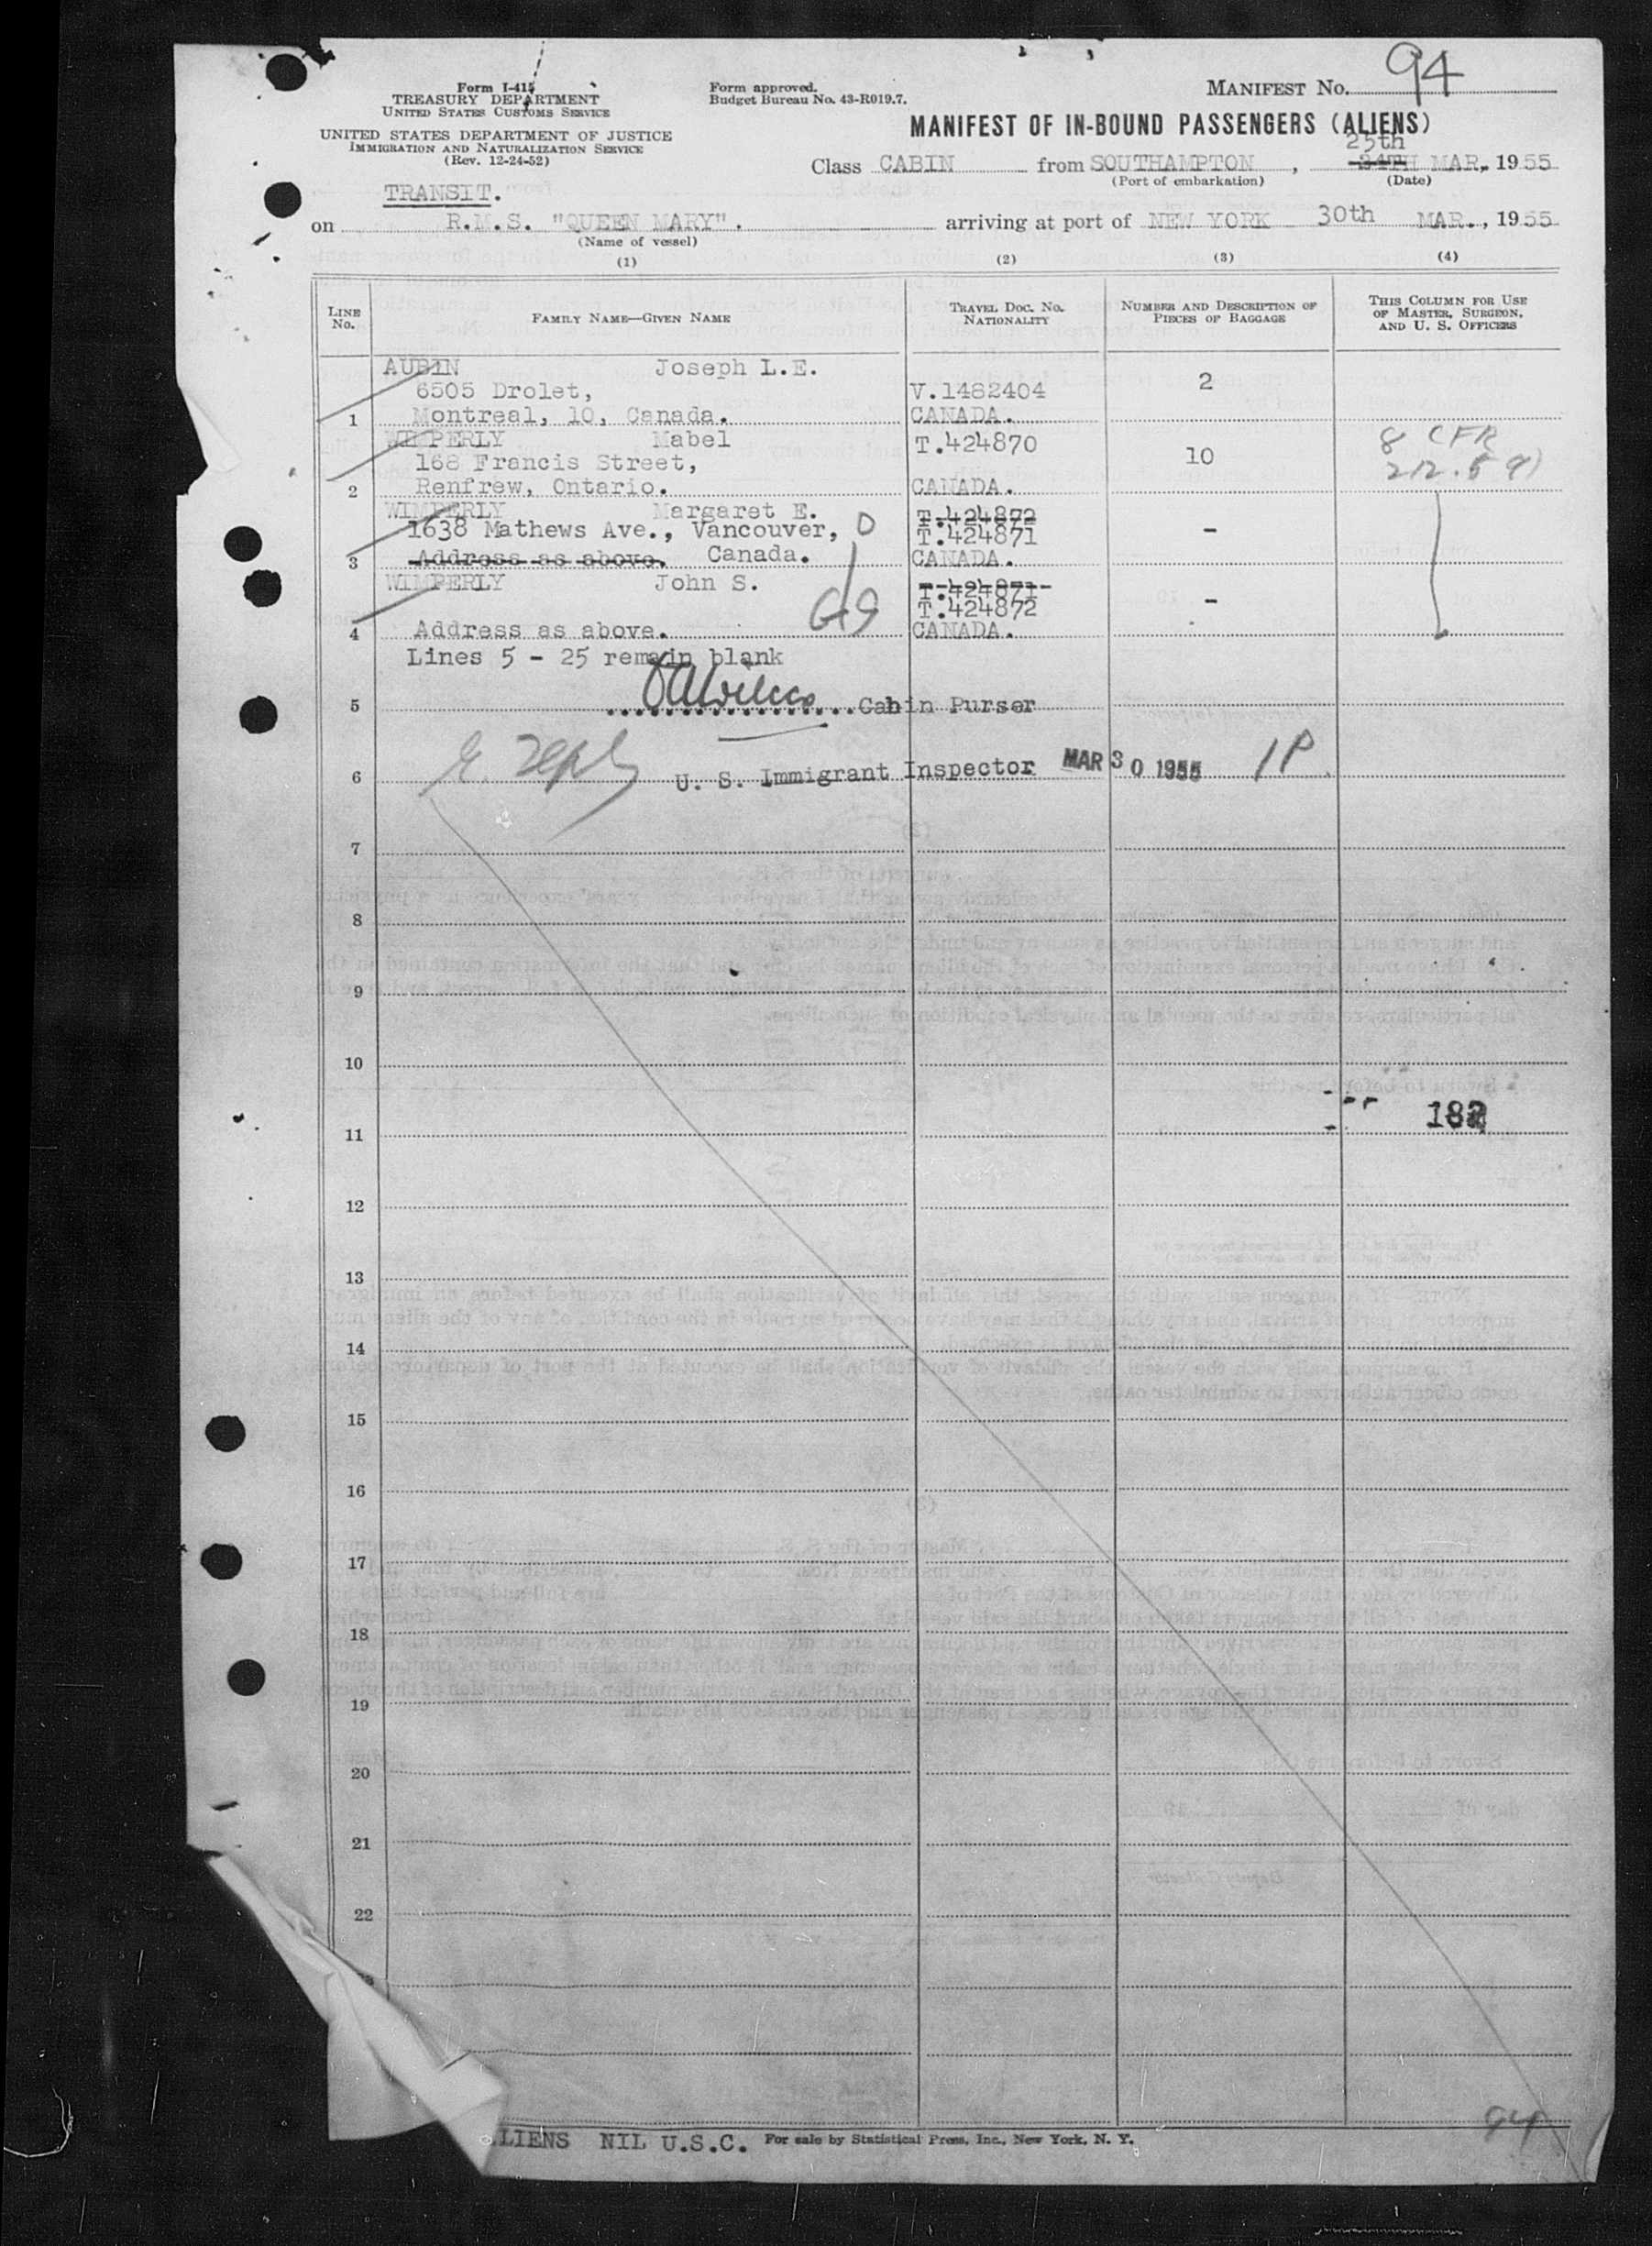 94
Form I-415
TREASURY DEPARTMENT
UNITED STATES CUSTOMS SERVICE
UNITED STATES DEPARTMENT OF JUSTICE
IMMIGRATION AND NATURALIZATION SERVICE
(Rev. 12-24-52)
Form approved.
Budget Bureau No. 43-R019.7.
MANIFEST No.
MANIFEST OF IN-BOUND PASSENGERS (ALIENS)
25th
Class CABIN from SOUTHAMPTON, 24TH MAR, 1955
(Port of embarkation) (Date)
TRANSIT.
on R.M.S. "QUEEN MARY". arriving at port of NEW YORK 30th MAR., 1955
(Name of vessel)
(1) (2) (3) (4)
LINE No. FAMILY NAME—GIVEN NAME TRAVEL DOC. NO. NATIONALITY NUMBER AND DESCRIPTION OF PIECES OF BAGGAGE THIS COLUMN FOR USE OF MASTER, SURGEON, AND U. S. OFFICERS
AUBIN Joseph L.E.
6505 Drolet, V.1482404 2
1 Montreal, 10, Canada. CANADA.
WIMPERLY Mabel T.424870 8 CFR
168 Francis Street, 10
2 Renfrew, Ontario. CANADA.
WIMPERLY Margaret E. T.424872
1638 Mathews Ave., Vancouver, T.424871 -
3 Address as above. Canada. CANADA.
WIMPERLY John S. T.424871
T.424872 -
4 Address as above. CANADA.
Lines 5 - 25 remain blank
5 Cabin Purser
6 U. S. Immigrant Inspector MAR 30 1955 1P
7
8
9
10
11
12
13
14
15
16
17
18
19
20
21
22
94
ALIENS NIL U.S.C. For sale by Statistical Press, Inc., New York, N. Y.